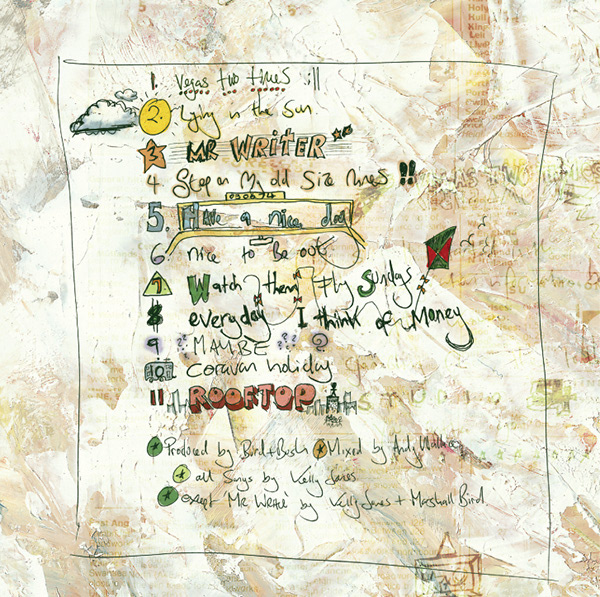 1. Vegas two times
2. Lying in the Sun
3 MR WRITER
4 Step on My old Size Nines !!
5. Have a nice day
6. nice to be out
7 Watch them Fly Sundays
$ everyday I think of Money
9 ?? MAYBE ??? ?
10 caravan holiday
11 ROOFTOP
* Produced by Bird + Bush * Mixed by Andy Wallace
* all Songs by Kelly Jones
* except 'Mr Writer' by Kelly Jones + Marshall Bird